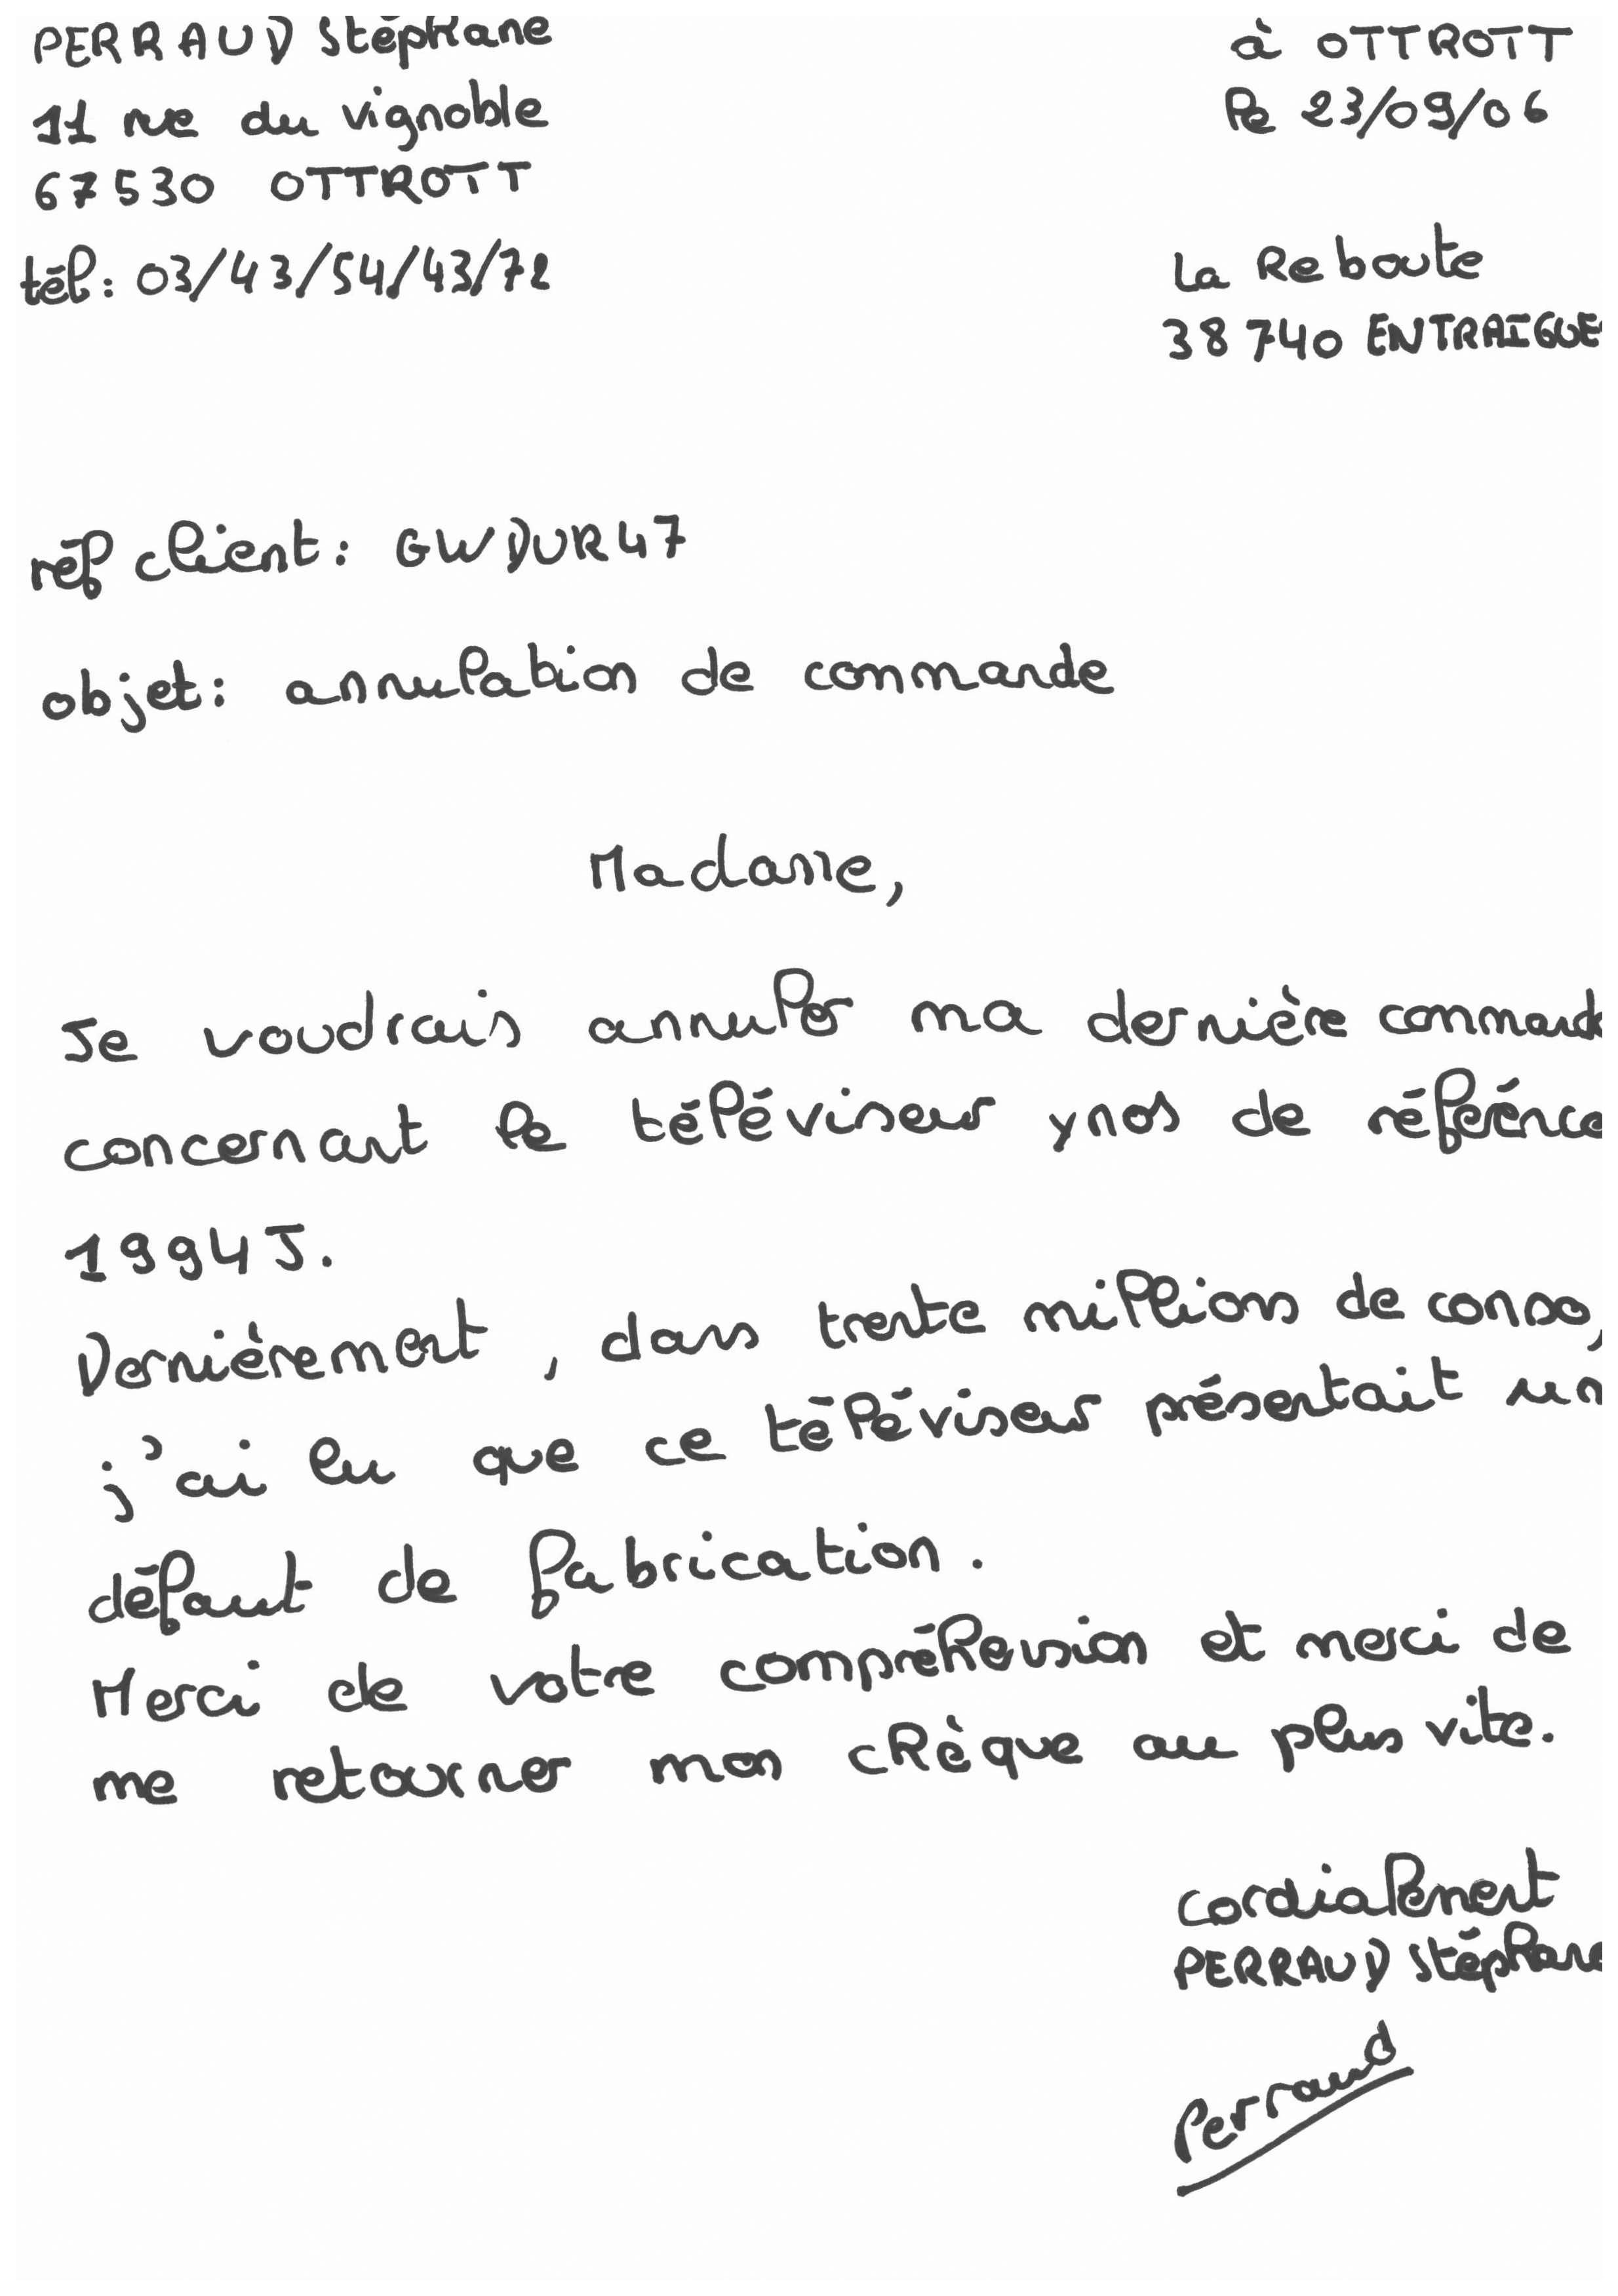 PERRAUD Stéphane
11 rue du vignoble
67530 OTTROTT
tél: 03/43/54/43/72
à OTTROTT
le 23/09/06
La Reboute
38740 ENTRAIGUE
réf client: GWDUR47
objet: annulation de commande
Madame,
Je voudrais annuler ma dernière commande
concernant le téléviseur ynos de référence
1994J.
Dernièrement, dans trente millions de conso,
j'ai lu que ce téléviseur présentait un
défaut de fabrication.
Merci de votre compréhension et merci de
me retourner mon chèque au plus vite.
Cordialement
PERRAUD Stéphane
Perraud